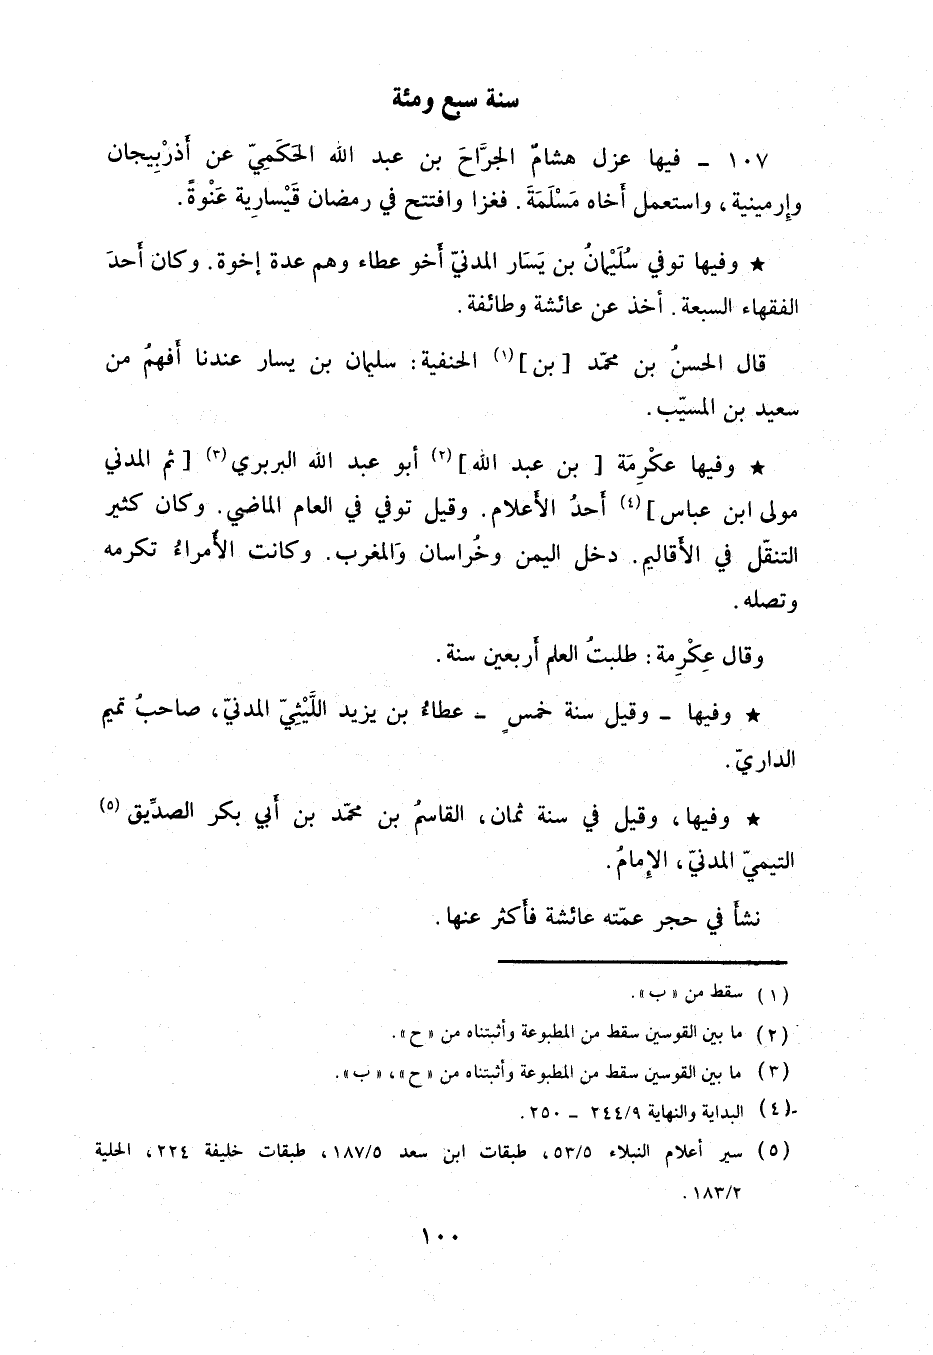 سنة سبع ومئة
١٠٧ ـ فيها عزل هشامٌ الجرَّاحَ بن عبد الله الحَكَمِيّ عن أَذرْبِيجان
وإرمينية، واستعمل أَخاه مَسْلَمَةَ. فغزا وافتتح في رمضان قَيْسارِية عَنْوةً.
★ وفيها توفي سُلَيْمانُ بن يَسَار المدنيّ أَخو عطاء وهم عدة إخوة. وكان أَحدَ
الفقهاء السبعة. أخذ عن عائشة وطائفة.
قال الحسنُ بن محمّد [بن](١) الحنفية: سليمان بن يسار عندنا أَفهمُ من
سعيد بن المسيّب.
★ وفيها عكْرِمَة [بن عبد الله](٢) أبو عبد الله البربري(٣) [ثم المدني
مولى ابن عباس](٤) أَحدُ الأَعلام. وقيل توفي في العام الماضي. وكان كثير
التنقّل في الأَقاليم. دخل اليمن وخُراسان وَالمغرب. وكانت الأُمراءُ تكرمه
وتصله.
وقال عِكْرِمة: طلبتُ العلم أَربعين سنة.
★ وفيها ـ وقيل سنة خمسٍ ـ عطاءُ بن يزيد اللَّيْثِيّ المدنيّ، صاحبُ تميم
الداريّ.
★ وفيها، وقيل في سنة ثمان، القاسمُ بن محمّد بن أَبي بكر الصدِّيق(٥)
التيميّ المدنيّ، الإِمامُ.
نشأَ في حجر عمّته عائشة فأَكثر عنها.
(١) سقط من «ب».
(٢) ما بين القوسين سقط من المطبوعة وأثبتناه من «ح».
(٣) ما بين القوسين سقط من المطبوعة وأثبتناه من «ح»، «ب».
(٤) البداية والنهاية ٢٤٤/٩ ـ ٢٥٠.
(٥) سير أعلام النبلاء ٥٣/٥، طبقات ابن سعد ١٨٧/٥، طبقات خليفة ٢٢٤، الحلية
١٨٣/٢.
١٠٠